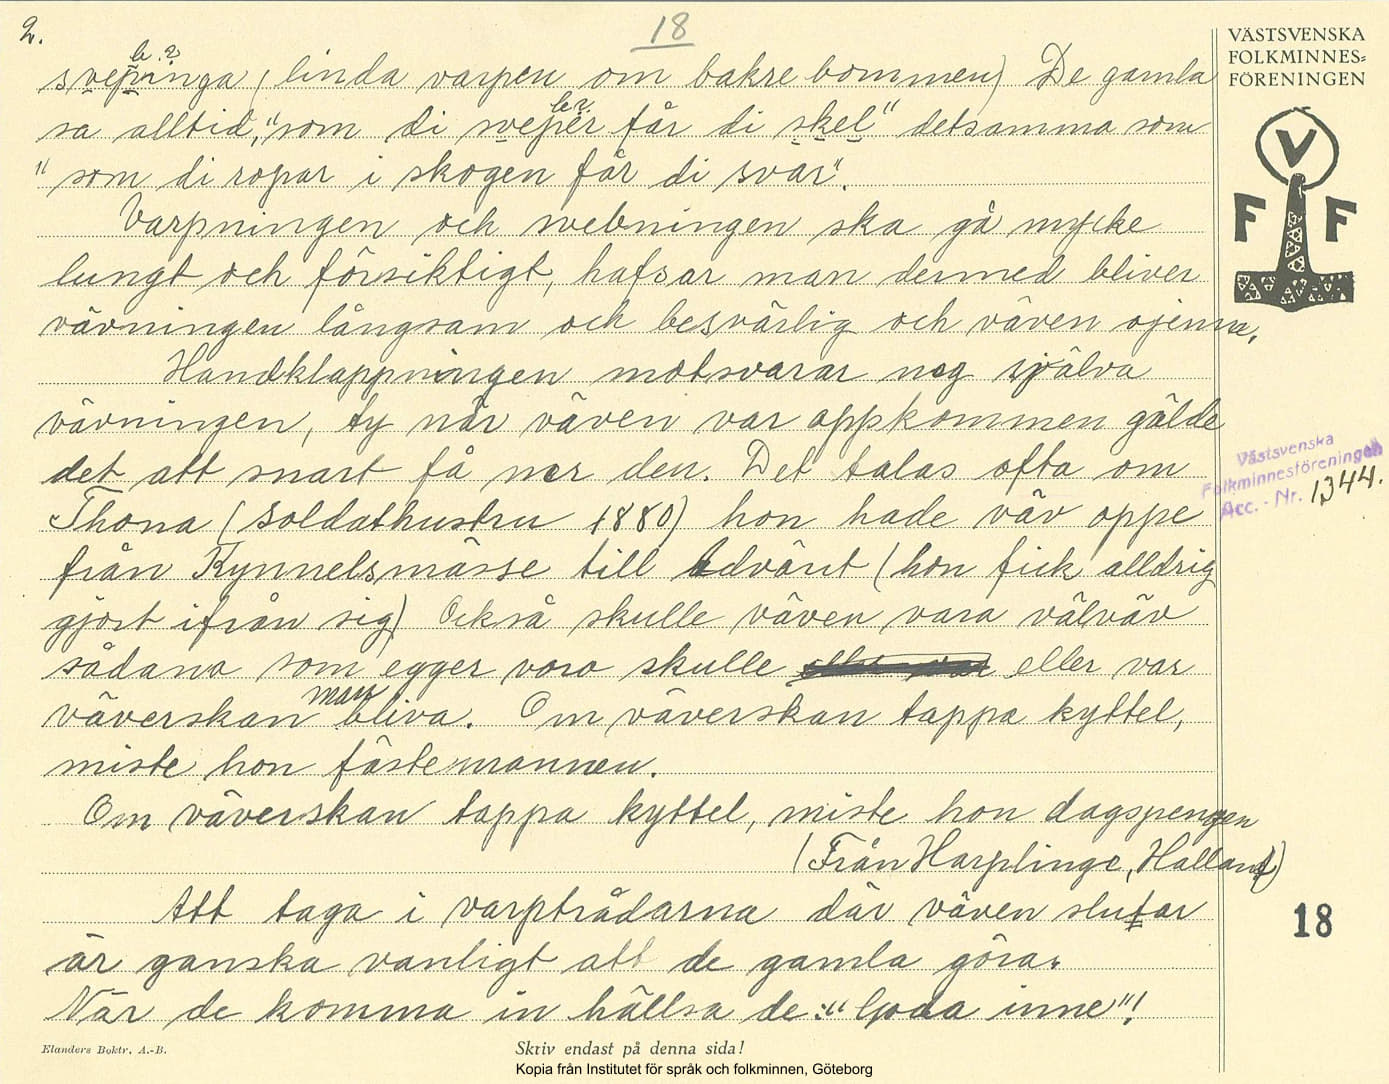 2.
18
VÄSTSVENSKA
FOLKMINNES-
FÖRENINGEN
b.?
svepninga (linda varpen om bakre bommen) De gamla
b?
sa alltid, "som di sveper får di skel" detsamma som
"som di ropar i skogen får di svar".
Varpningen och svebningen ska gå mycke
lungt och försiktigt, hafsar man dermed bliver
vävningen långsam och besvärlig och väven ojenna,
Handklappningen motsvarar nog själva
vävningen, ty när väven var oppkommen gälde
det att snart få ner den. Det talas ofta om
Thona (soldathustru 1880) hon hade väv oppe
från Kynnelsmässe till Advänt (hon fick alldrig
gjort ifrån sig) Också skulle väven vara välväv
sådana som egger voro skulle eller var
man
väverskan bliva. Om väverskan tappa kyttel,
miste hon fästemannen.
Om väverskan tappa kyttel, miste hon dagspengen
(Från Harplinge, Halland)
Att taga i varptrådarna där väven slutar
är ganska vanligt att de gamla göra.
När de komma in hällsa de: "Goda inne"!
V
F F
Västsvenska
Folkminnesföreningen
Acc. - Nr. 1344.
18
Elanders Boktr. A.-B.
Skriv endast på denna sida!
Kopia från Institutet för språk och folkminnen, Göteborg